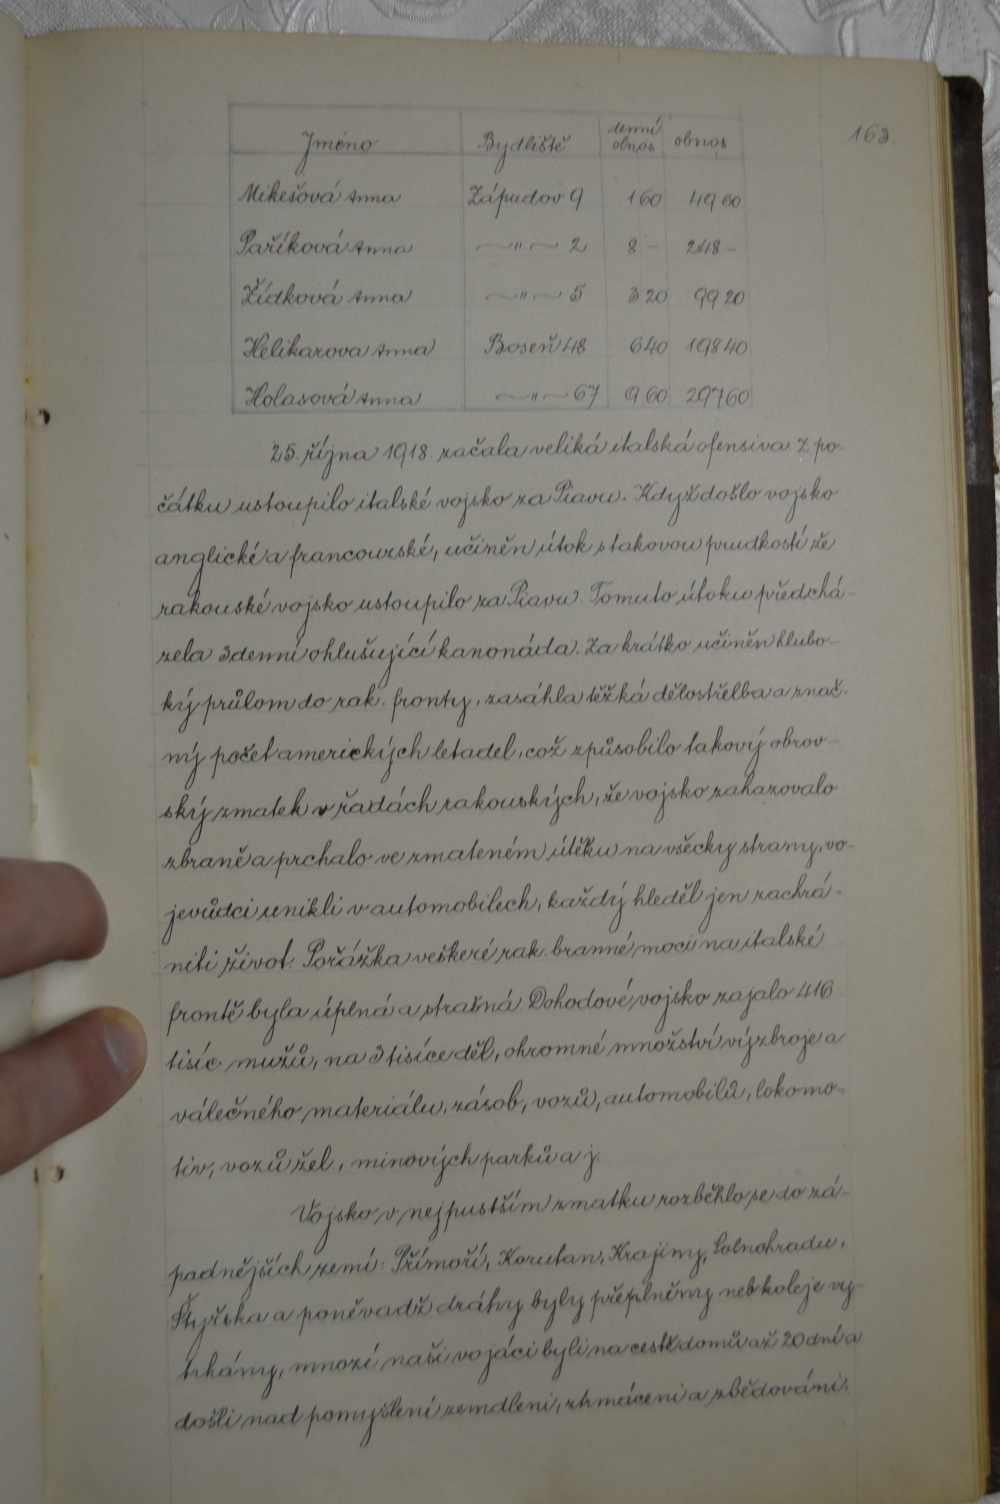 163.
Jméno Bydliště denní obnos obnos
Mikešová Anna Západov 9 1 60 49 60
Paříková Anna —"— 2 8 – 248 –
Žídková Anna —"— 5 3 20 99 20
Helikarova Anna Boseň 48 6 40 198 40
Holasová Anna —"— 67 9 60 297 60
25. října 1918 začala veliká italská ofensiva z po-
čátku ustoupilo italské vojsko za Piavu. Když došlo vojsko
anglické a francouzské, učiněn útok s takovou prudkostí že
rakouské vojsko ustoupilo za Piavu. Tomuto útoku předchá-
zela 3denní ohlušující kanonáda. Za krátko učiněn hlubo-
ký průlom do rak. fronty, zasáhla těžká dělostřelba a znač-
ný počet amerických letadel, což způsobilo takový obrov-
ský zmatek v řadách rakouských, že vojsko zahazovalo
zbraně a prchalo ve zmateném útěku na všecky strany, vo-
jevůdci unikli v automobilech, každý hleděl jen zachrá-
niti život. Porážka veškeré rak. branné moci na italské
frontě byla úplná a strašná. Dohodové vojsko zajalo 416
tisíc mužů, na 3 tisíce děl, ohromné množství výzbroje a
válečného materiálu, zásob, vozů, automobilů, lokomo-
tiv, vozů žel., minových parků a j.
Vojsko v nejpustším zmatku rozběhlo se do zá-
padnějších zemí: Přímoří, Korutan, Krajiny, Solnohradu,
Štyrska a poněvadž dráhy byly přeplněny neb koleje vy-
trhány, mnozí naši vojáci byli na cestě domů až 20 dní a
došli nad pomyšlení zemdlení, ztrmáceni a zbědováni.